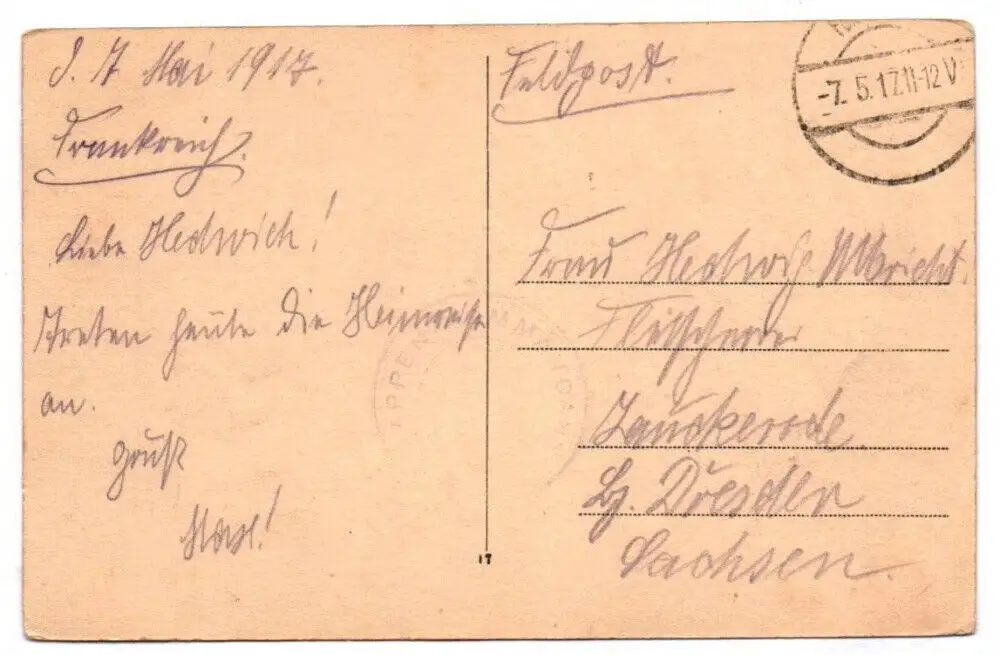 d. 7 Mai 1917.
Frankreich.
Liebe Hedwich!
Treten heute die Heimreise
an.
Gruß
Max!
Feldpost.
-7.5.17.11-12V
Frau Hedwig Albricht.
Fleischerei
Zauckerode
Bz. Dresden
Sachsen.
17